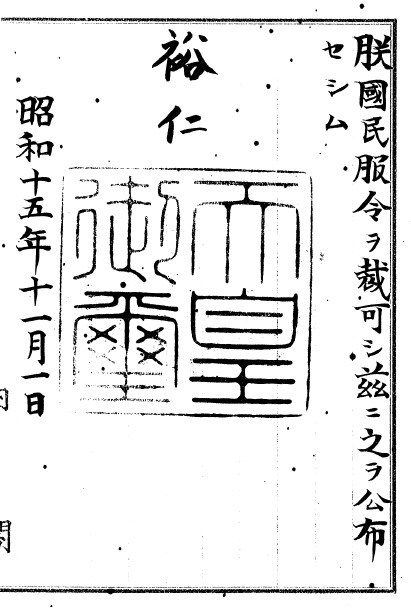 朕國民服令ヲ裁可シ茲ニ之ヲ公布
セシム
裕仁
天皇
御璽
昭和十五年十一月一日
内閣